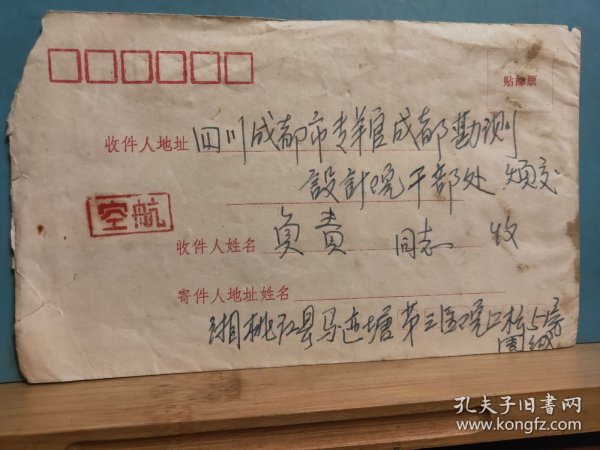 贴邮票
收件人地址 四川成都市青羊宫成都勘测
設計院干部处 烦交
空航
收件人姓名 負責 同志 收
寄件人地址姓名
湖桃江县马迹塘第三医院口松5号
孔夫子旧书网
www.kongfz.com